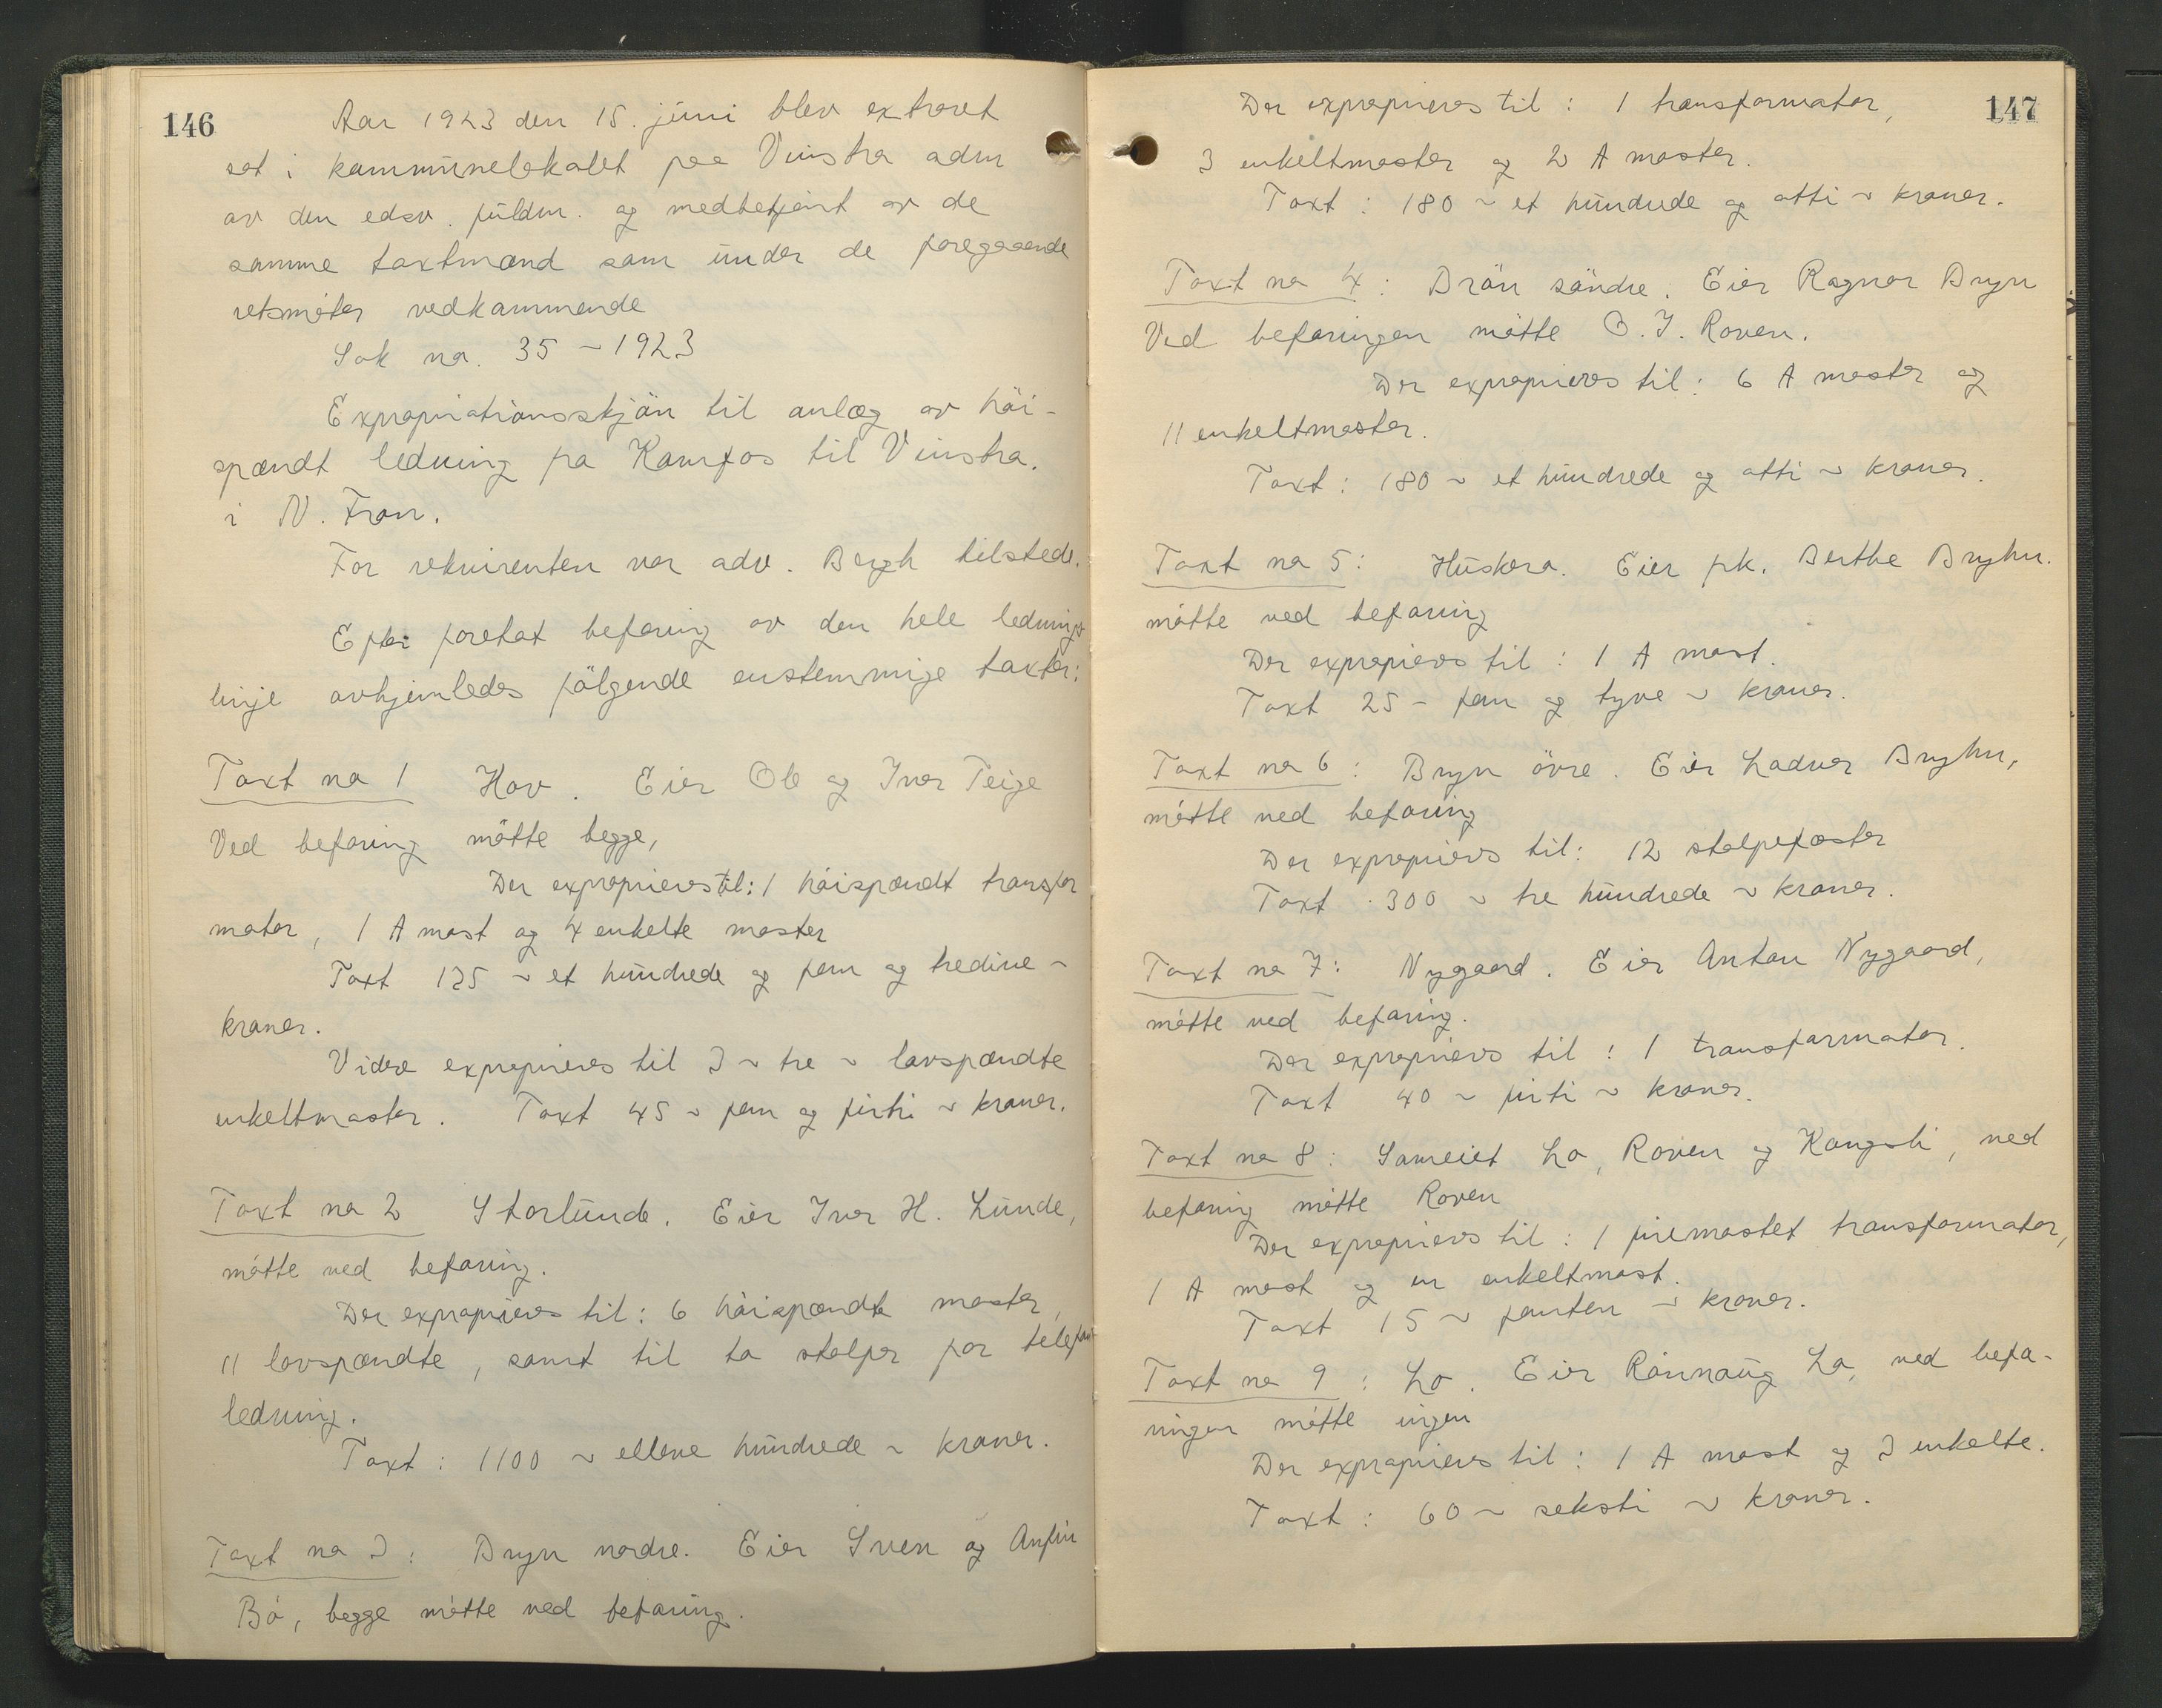 146
Aar 1923 den 15. juni blev extraret
sat i kommunelokalet paa Vinstra adm
av den edsv. fuldm. og medbetjent av de
samme taxtmænd som under de foregaaende
retsmöter vedkommende
Sak no. 35 - 1923
Expropriationsskjön til anlæg av höi-
spændt ledning fra Kamfos til Vinstra.
i N. Fron.
For rekvirenten var adv. Bergh tilstede.
Efter foretat befaring av den hele lednings
linje avhjemledes fölgende enstemmige taxter:
Taxt no 1 Hov. Eier Ole og Iver Teige
Ved befaring mötte begge,
Der exproprieres til: 1 höispændt transfor
mator, 1 A mast og 4 enkelte master
Taxt 135 ~ et hundrede og fem og tredive ~
kroner.
Videre exproprieres til 3 ~ tre ~ lavspændte
enkeltmaster. Taxt 45 ~ fem og firti ~ kroner.
Taxt no 2 Storlunde. Eier Iver H. Lunde,
mötte ved befaring.
Der exproprieres til: 6 höispændte master,
11 lavspændte, samt til to stolper for telefon
ledning.
Taxt: 1100 ~ elleve hundrede ~ kroner.
Taxt no 3: Bryn nordre. Eier Sven og Anfin
Bö, begge mötte ved befaring.
147
Der exproprieres til: 1 transformator,
3 enkeltmaster og 2 A master.
Taxt: 180 ~ et hundrede og otti ~ kroner.
Taxt no 4: Brön söndre. Eier Ragnar Bryn
Ved befaringen mötte O. J. Roven.
Der exproprieres til: 6 A master og
11 enkeltmaster.
Taxt: 180 ~ et hundrede og otti ~ kroner.
Taxt no 5: Huskera. Eier frk. Berthe Bryhn.
mötte ved befaring
Der exproprieres til: 1 A mast.
Taxt 25 - fem og tyve ~ kroner.
Taxt no 6: Bryn övre. Eier Lodver Bryhn,
mötte ved befaring
Der exproprieres til: 12 stolpefæster
Taxt 300 ~ tre hundrede ~ kroner.
Taxt no 7: Nygaard. Eier Anton Nygaard,
mötte ved befaring.
Der exproprieres til: 1 transformator.
Taxt 40 ~ firti ~ kroner.
Taxt no 8: Sameiet Lo, Roven og Kongsli, ved
befaring mötte Roven
Der exproprieres til: 1 firemastet transformator,
1 A mast og en enkeltmast.
Taxt 15 ~ femten ~ kroner.
Taxt no 9: Lo. Eier Rönnaug Lo, ved befa-
ringen mötte ingen
Der exproprieres til: 1 A mast og 3 enkelte.
Taxt: 60 ~ seksti ~ kroner.